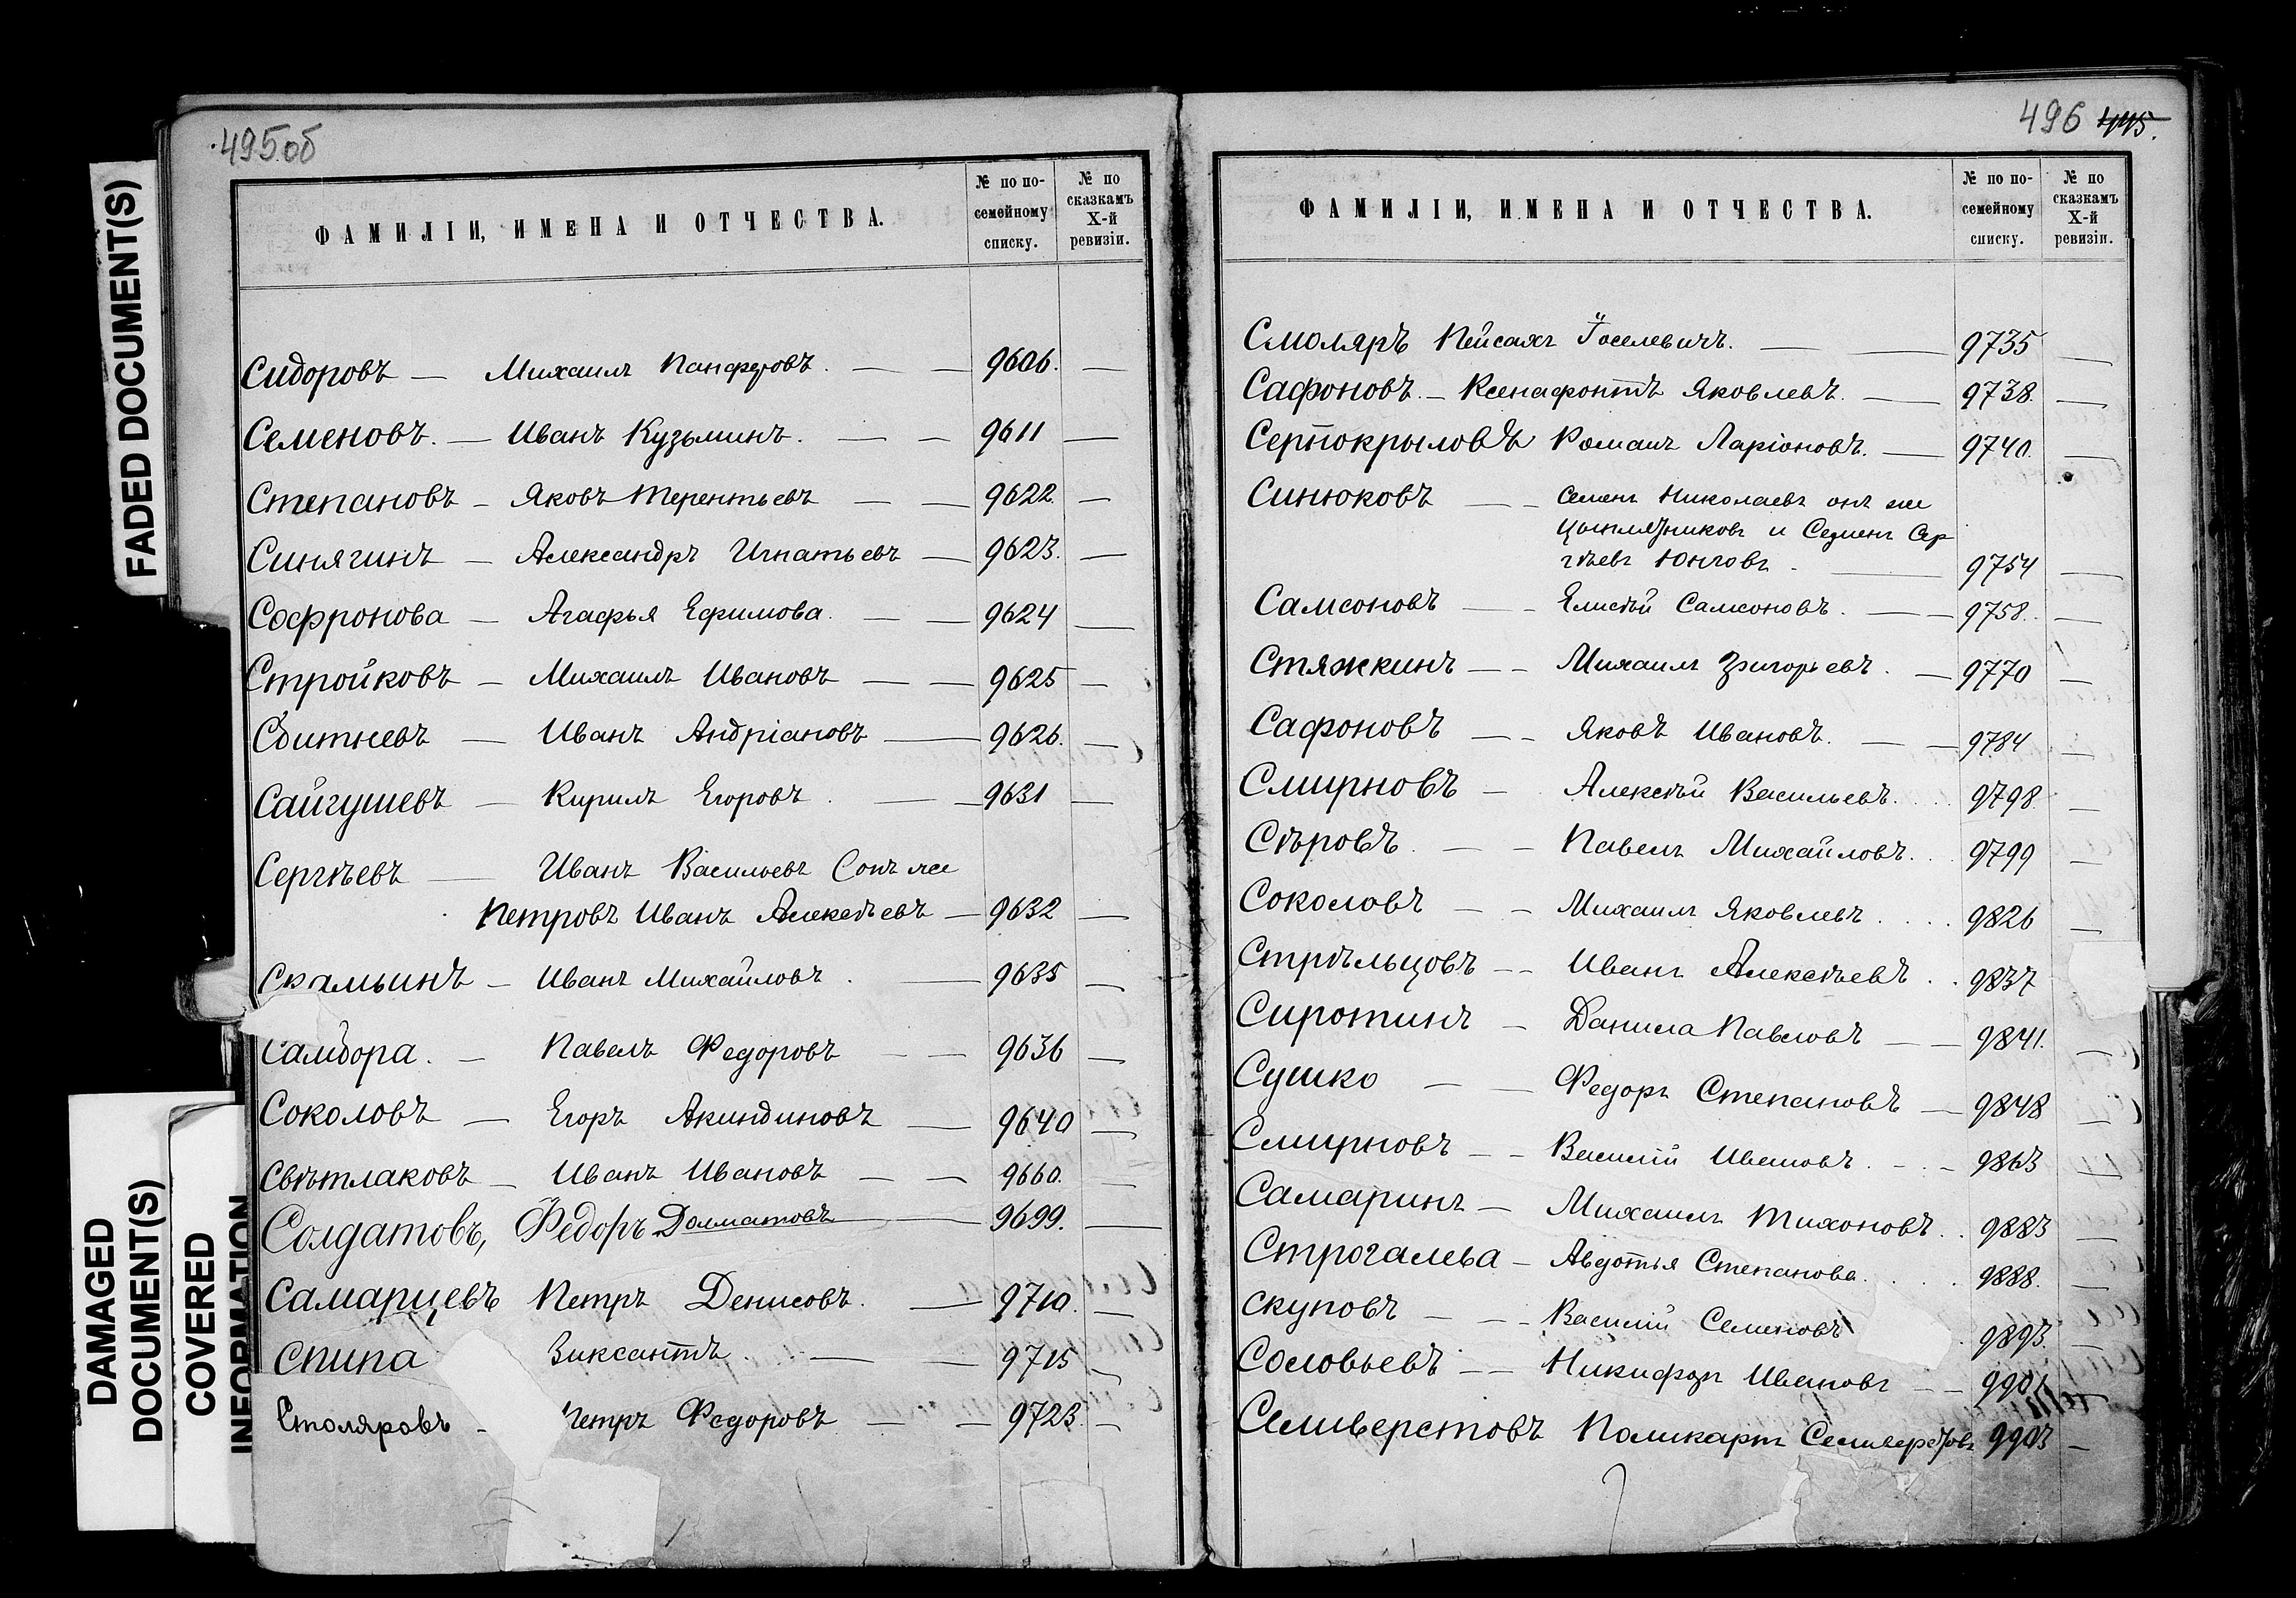 495об
ФАМИЛІИ, ИМЕНА И ОТЧЕСТВА.
№ по по-
семейному
списку.
№ по
сказкамъ
X-й
ревизіи.
Сидоровъ — Михаилъ Панферовъ. — — 9606. —
Семеновъ. — Иванъ Кузьминъ. — — 9611 —
Степановъ — Яковъ Терентьевъ — — 9622. —
Синягинъ — Александръ Игнатьевъ — 9623. —
Софронова — Агафья Ефимова. — — 9624 —
Стройковъ — Михаилъ Ивановъ — — 9625 —
Сбитневъ — Иванъ Андріановъ — 9626. —
Сайгушевъ — Кирилъ Егоровъ. — — 9631 —
Сергѣевъ — Иванъ Васильевъ Онъ же
Петровъ Иванъ Алексѣевъ — 9632 —
Скамьинъ — Иванъ Михайловъ. — 9635 —
Самбора. — Павелъ Федоровъ — — 9636 —
Соколовъ — Егоръ Акиндиновъ — 9640 —
Свѣтлаковъ — Иванъ Ивановъ — — 9660. —
Солдатовъ, Федоръ Долматовъ — 9699. —
Самарцевъ Петръ Денисовъ. — 9710. —
Спипа Виксантъ — — 9715 —
Столяровъ — Петръ Федоровъ — — 9723. —
496 445.
ФАМИЛІИ, ИМЕНА И ОТЧЕСТВА.
№ по по-
семейному
списку.
№ по
сказкамъ
X-й
ревизіи.
Смоляръ Пейсахъ Іоселевичъ. — — 9735 —
Сафоновъ. — Ксенафонтъ Яковлевъ. — 9738. —
Серпокрыловъ Романъ Ларіоновъ. — 9740. —
Синюковъ — — Семенъ Николаевъ онъ же
Цыплятниковъ и Семенъ Сер
гѣевъ Юнговъ. — 9754 —
Самсоновъ — — Елисѣй Самсоновъ. — — 9758. —
Стяжкинъ — — Михаилъ Григорьевъ. — 9770 —
Сафоновъ — — Яковъ Ивановъ. — — 9784 —
Смирновъ — Алексѣй Васильевъ. 9798. —
Сѣровъ. — — Павелъ Михайловъ. 9799 —
Соколовъ — — Михаилъ Яковлевъ. 9826 —
Стрѣльцовъ — — Иванъ Алексѣевъ. 9837
Сиротинъ — Данила Павловъ — — 9841. —
Сушко — — Федоръ Степановъ — 9848 —
Смирновъ — — Василій Ивановъ. — — 9863 —
Самаринъ — Михаилъ Тихоновъ. 9883 —
Строгалева — Авдотья Степанова. 9888. —
Скуповъ — — Василій Семеновъ 9893. —
Соловьевъ — — Никифоръ Ивановъ — — 9901
Селиверстовъ Поликарпъ Селиверстовъ 9903 —
FADED DOCUMENT(S)
DAMAGED
DOCUMENT(S)
COVERED
INFORMATION